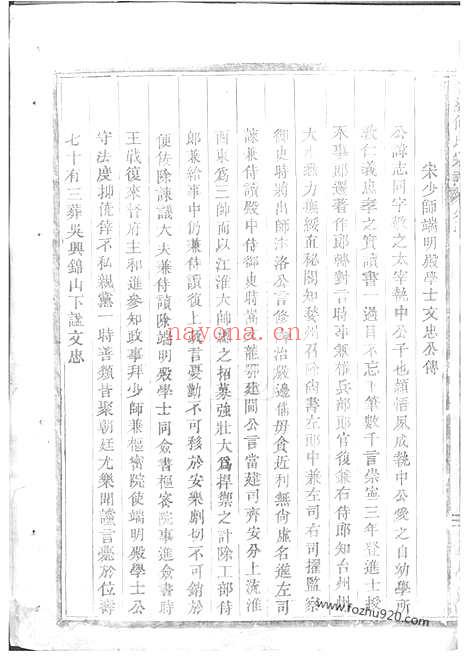 宋少師端明殿學士文忠公傳
公諱志同字
之太宰執中公子也穎悟夙成執中公愛之自幼學所
敦仁義忠孝之實讀書一過目不忘下筆數千言崇寧三年登進士授
郎遷著作郎轉對言時事兼權兵部郎官復兼右侍郎知台州州
大力撫綏直秘閣知婺州召除尚書左郎中兼左司右司擢監察
御史時將出師汴洛公言修邊備毋貪近利無尚虛名遷左司
諫兼侍讀殿中侍御史時蜀龍鄂建閫公言當建司齊安分上流淮
西東為三帥而以江淮大帥之招募強壯大為捍禦之計除工部侍
郎兼給事中仍兼侍讀復上言憂勤不可移於安樂剴切不可銷於
便佞除諫議大夫兼侍讀除端明殿學士同僉書樞密院事進僉書時
王戰復來督府主和進參知政事拜少師兼樞密院使端明殿學士公
守法度抑僥倖不私親黨一時善類皆聚朝廷尤樂聞讜言薨於位壽
七十有三葬吳興錦山下諡文忠
nayona.cn
www.fozhu920.com